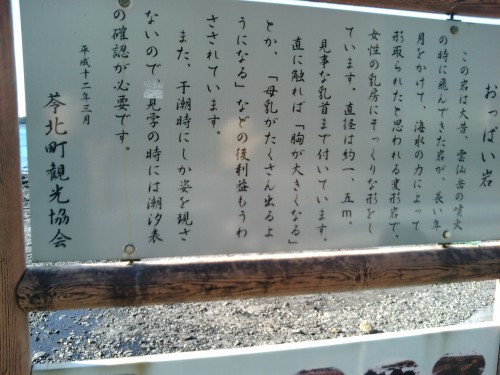 おっぱい岩
この岩は大昔、雲仙岳の噴火
の時に飛んできた岩が、長い年
月をかけて、海水の力によって
形取られたと思われる変形岩で、
女性の乳房にそっくりな形をし
ています。直径は約一．五m．
見事な乳首まで付いています。
直に触れば「胸が大きくなる」
とか、「母乳がたくさん出るよ
うになる」などの後利益もうわ
さされています。
また、干潮時にしか姿を現さ
ないので、見学の時には潮汐表
の確認が必要です。
平成十二年三月
苓北町観光協会